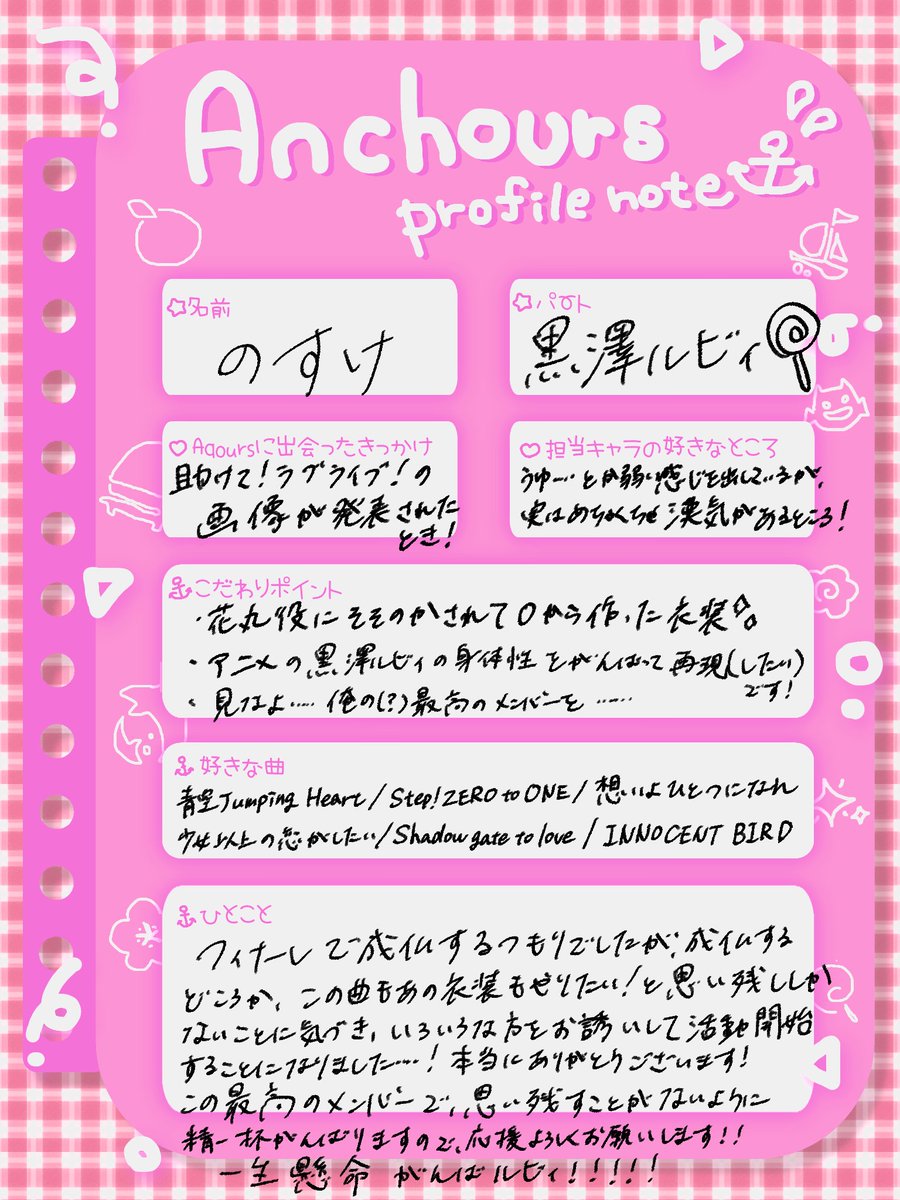 Anchours
profile note
名前
のすけ
パート
黒澤ルビィ
Aqoursに出会ったきっかけ
助けて!ラブライブ!の
画像が発表された
とき!
担当キャラの好きなところ
うゆ…とか弱い感じを出しているが、
実はめちゃくちゃ漢気があるところ!
こだわりポイント
・花丸役にそそのかされて0から作った衣装
・アニメの黒澤ルビィの身体性をがんばって再現(したい)
です!
・見なよ…‥俺の(?)最高のメンバーを……
好きな曲
青空Jumping Heart/Step!ZERO to ONE/想いよひとつになれ
少女以上の恋がしたい/Shadow gate to love/INNOCENT BIRD
ひとこと
フィナーレで成仏するつもりでしたが、成仏する
どころか、この曲もあの衣装もやりたい!と思い残ししか
ないことに気づき、いろいろな方をお誘いして活動開始
することになりました…‥!本当にありがとうございます!
この最高のメンバーで、思い残すことがないように
精一杯がんばりますので、応援よろしくお願いします!!
一生懸命 がんばルビィ!!!!!